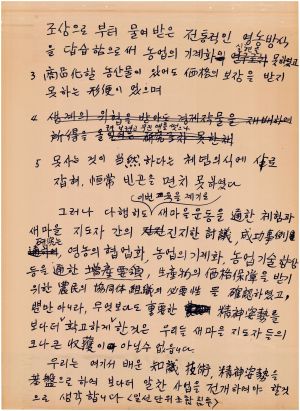 조상으로 부터 물여받은 전통적인 영농방식
을 답습함으로써 농업의 기계화 못하였고
3 商品化할 농산물이 있어도 価格의 보장을 받지
못하는 形便이 있으며
4 생계의 위협을 받아도 경제작물을 재배하여
所得을 못한채
5 못사는 것이 当然하다는 체념의식에 사로
잡혀, 恒常 빈곤을 면치 못하였다
이번 교육을 계기로
그러나 다행히도 새마을운동을 通한 체험과
새마을 지도자 간의 진지한 討議, 成功事例
통하여, 영농의 협업화, 농업의 기계화, 농업기술 향상
等을 通한 増産意慾, 生産物의 価格保障을 받기
위한 農民의 協同体 組織의 必要性을 確認하였고,
뿐만 아니라, 무엇보다도 重要한 精神姿勢를
보다더 "확고하게"한것은 우리들 새마을 지도자 들의
크나큰 収穫이 아닐수 없읍니다
우리는 여기서 배운 知識 技術, 精神姿勢을
基盤으로 하여 보다더 알찬 사업을 전개하여야 할것
으로 생각합니다